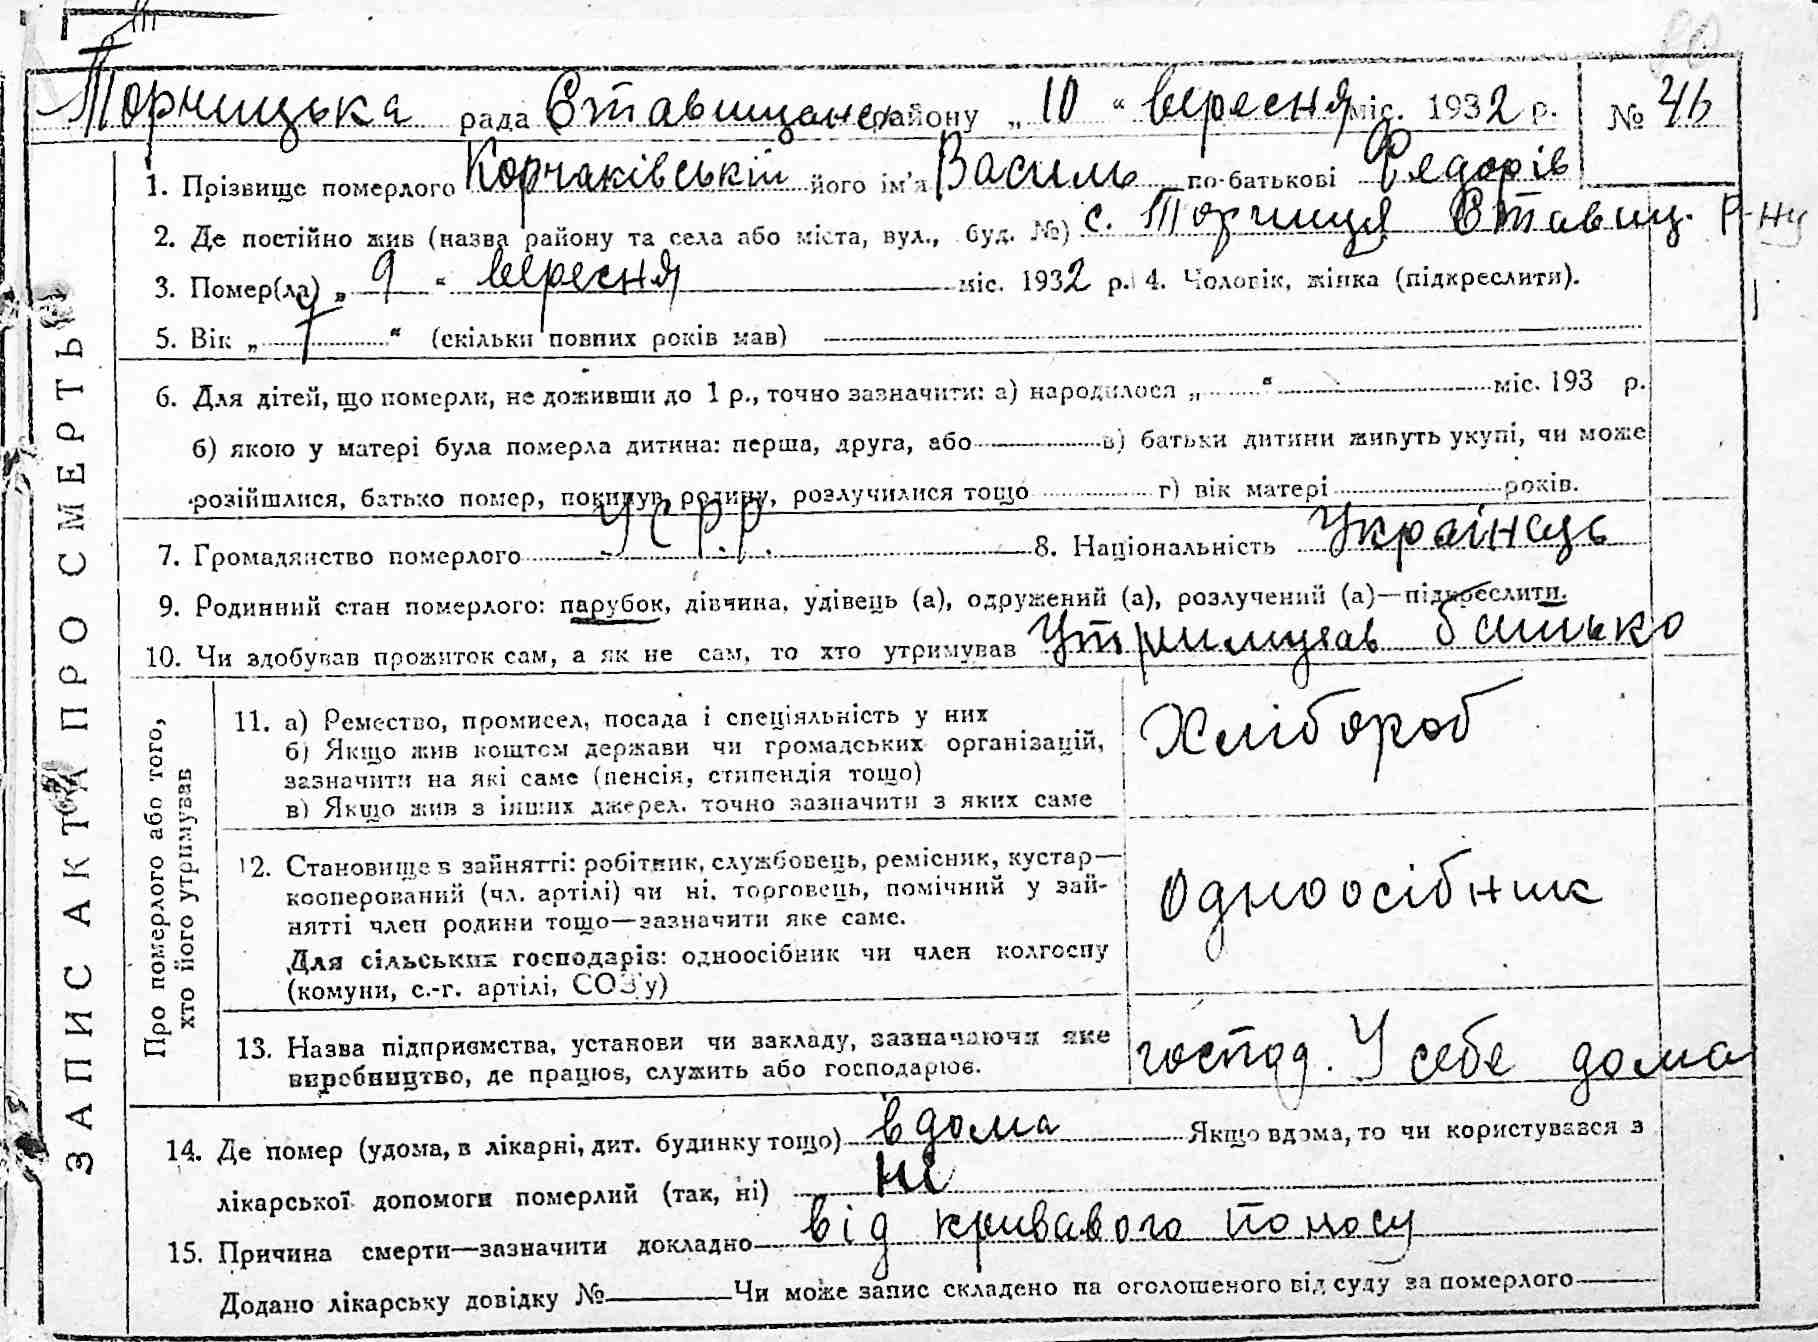 Торчицька рада Ставищанск району „ 10 “ вересня міс. 1932 р. № 46
1. Прізвище померлого Корчаківській його ім’я Василь по-батькові Федорів
2. Де постійно жив (назва району та села або міста, вул., буд. №) с. Торчиця Ставищ. р-ну
3. Помер(ла) „ 9 “ вересня міс. 1932 р. 4. Чоловік, жінка (підкреслити).
5. Вік „ “ (скільки повних років мав)
6. Для дітей, що померли, не доживши до 1 р., точно зазначити: а) народилося „ “ міс. 193 р.
б) якою у матері була померла дитина: перша, друга, або в) батьки дитини живуть укупі, чи може
розійшлися, батько помер, покинув родину, розлучилися тощо г) вік матері років.
7. Громадянство померлого У.С.Р.Р. 8. Національність Українець
9. Родинний стан померлого: парубок, дівчина, удівець (а), одружений (а), розлучений (а)—підкреслити.
10. Чи здобував прожиток сам, а як не сам, то хто утримував Утримував батько
ЗАПИС АКТА ПРО СМЕРТЬ
Про померлого або того,
хто його утримував
11. а) Ремество, промисел, посада і спеціяльність у них
б) Якщо жив коштом держави чи громадських організацій,
зазначити на які саме (пенсія, стипендія тощо)
в) Якщо жив з інших джерел, точно зазначити з яких саме
Хлібороб
12. Становище в зайнятті: робітник, службовець, ремісник, кустар—
кооперований (чл. артілі) чи ні, торговець, помічний у зай-
нятті член родини тощо—зазначити яке саме.
Для сільських господарів: одноосібник чи член колгоспу
(комуни, с.-г. артілі, СОЗ’у)
Одноосібник
13. Назва підприємства, установи чи закладу, зазначаючи яке
виробництво, де працює, служить або господарює.
господ. У себе дома
14. Де помер (удома, в лікарні, дит. будинку тощо) вдома Якщо вдома, то чи користувався з
лікарської допомоги померлий (так, ні) ні
15. Причина смерти—зазначити докладно від кривавого поносу
Додано лікарську довідку № Чи може запис складено на оголошеного від суду за померлого